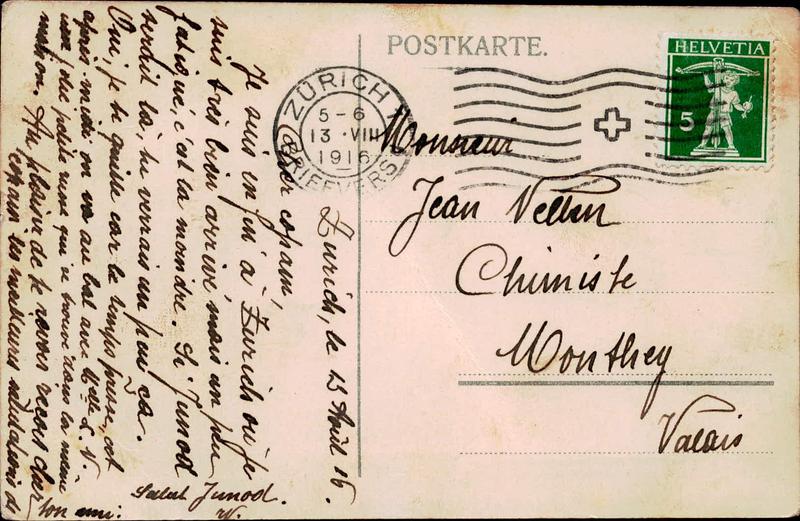 POSTKARTE.
HELVETIA
5
ZÜRICH
5-6
13.VIII
1916
BRIEFVERS
Monsieur
Jean
Chimiste
Monthey
Valais
Zürich, le 13 Août 16.
Cher copain,
Je suis enfin à Zurich où je
suis très bien arrivé mais un peu
fatigué, c'est la moindre. Si Junod
serait là, tu verrais un peu ça.
Oui, je te quitte car le temps presse, cet
après-midi on va au bal avec Melle S. V.
une jolie petite qui se trouve dans la même
Au plaisir de te revoir reçois cher
copain les meilleures salutations de
ton ami:
Salut Junod.
W.